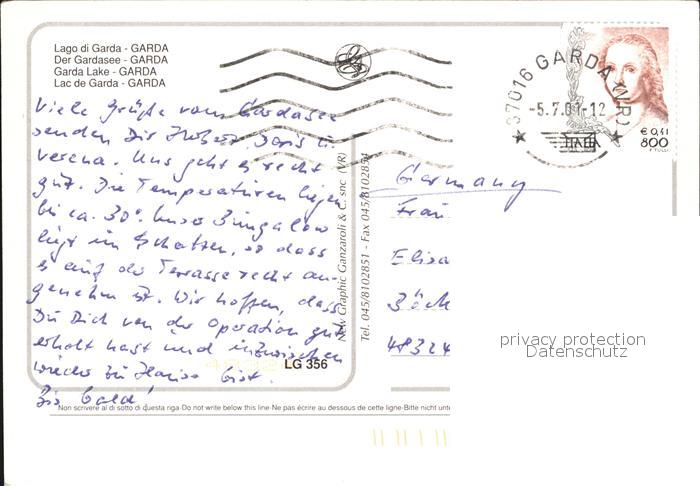 Lago di Garda - GARDA
Der Gardasee - GARDA
Garda Lake - GARDA
Lac de Garda - GARDA
Viele Grüße vom Gardasee
senden Dir Hubert, Doris u.
Verena. Uns geht es recht
gut. Die Temperaturen liegen
bei ca. 30°. Unser Bungalow
liegt im Schatten, so dass
es auf der Terrasse recht an-
genehm ist. Wir hoffen, dass
Du Dich von der Operation gut
erholt hast und inzwischen
wieder zu Hause bist.
Bis bald!
LG 356
New Graphic Ganzaroli & C. snc (VR)
Tel. 045/8102851 - Fax 045/8102851
37016 GARDA (VR)
-5.7.01-12
ITALIA
€ 0,41
800
Germany
Frau
Elisa
Böck
48324
privacy protection
Datenschutz
Non scrivere al di sotto di questa riga-Do not write below this line-Ne pas écrire au dessous de cette ligne-Bitte nicht unt